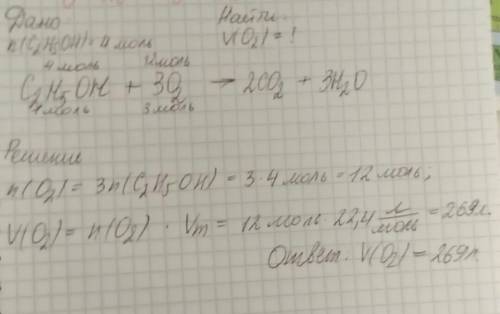 Дано
Найти.
n(C₂H₅OH)=4 моль
V(O₂)=!
4 моль 12 моль
C₂H₅OH + 3O₂ → 2CO₂ + 3H₂O
1 моль 3 моль
Решение
n(O₂)= 3n(C₂H₅OH) = 3·4 моль = 12 моль;
V(O₂)= n(O₂) · Vm = 12 моль · 22,4 л/моль = 269л.
Ответ. V(O₂)=269л.